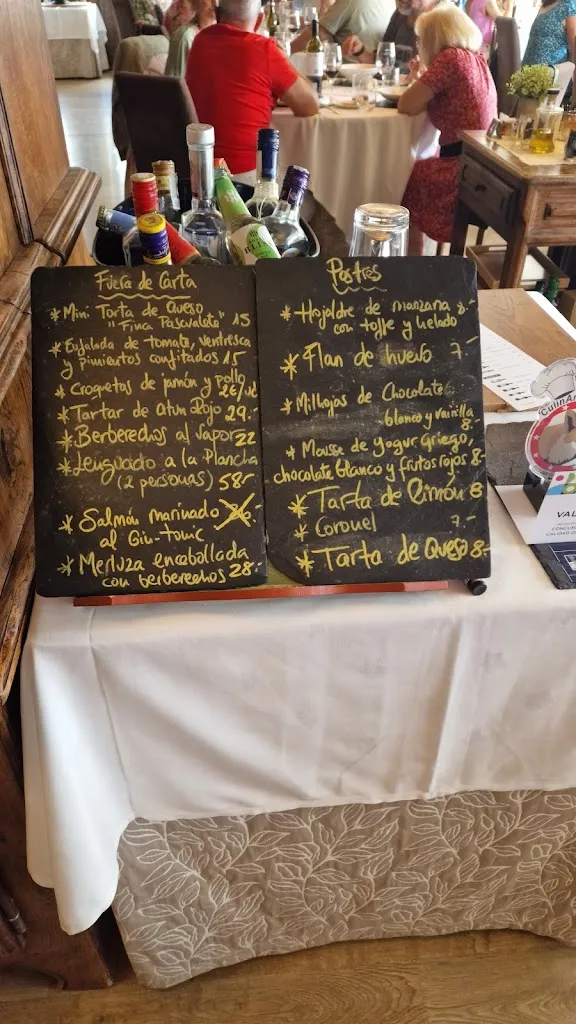 Fuera de Carta
* Mini Torta de Queso
"Finca Pascualete" 15
* Ensalada de tomate, ventresca
y pimientos confitados 15
* Croquetas de jamón y pollo
2€/ud
* Tartar de atun Rojo 29.-
* Berberechos al vapor 22
* Lenguado a la Plancha
(2 personas) 58.-
* Salmón marinado
al Gin-tonic
* Merluza encebollada
con berberechos 28.-
Postres
* Hojaldre de manzana 8.-
con toffe y helado
* Flan de huevo 7.-
* Milhojas de Chocolate
blanco y vainilla
8.-
* Mousse de yogur Griego,
chocolate blanco y frutos rojos 8.-
* Tarta de limón 8
* Coronel 7.-
* Tarta de Queso 8.-
CulinAr
VAL
CONCURS
CALIDAD